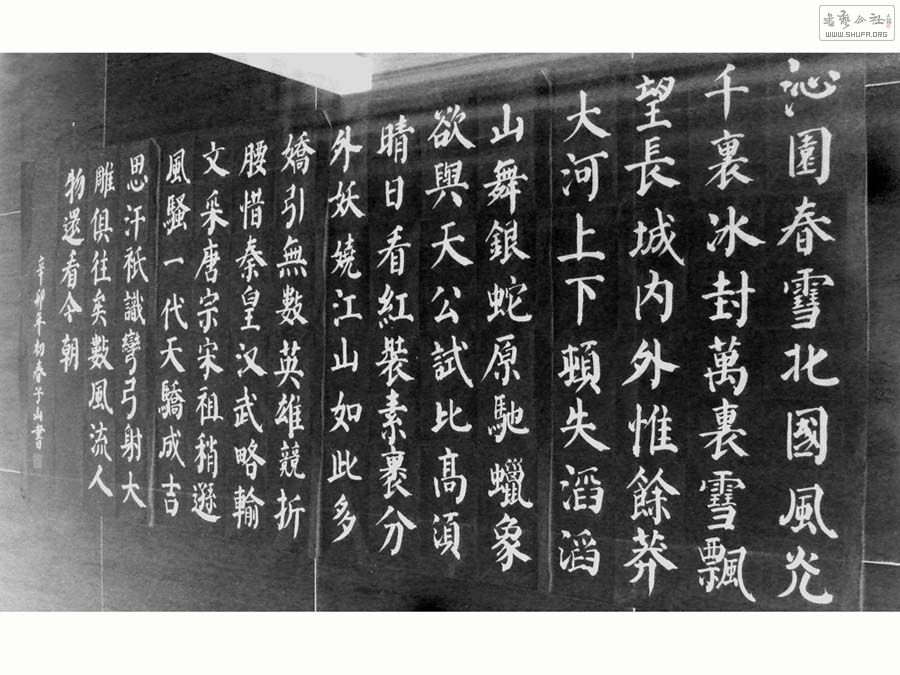 沁園春雪北國風光
千裏冰封萬裏雪飄
望長城内外惟餘莽
大河上下頓失滔滔
山舞銀蛇原馳蠟象
欲與天公試比高須
晴日看紅裝素裹分
外妖嬈江山如此多
嬌引無數英雄競折
腰惜秦皇汉武略輸
文采唐宗宋祖稍遜
風騷一代天驕成吉
思汗祇識彎弓射大
雕俱往矣數風流人
物還看今朝
辛卯年初春子山書
書藝公社
WWW.SHUFA.ORG